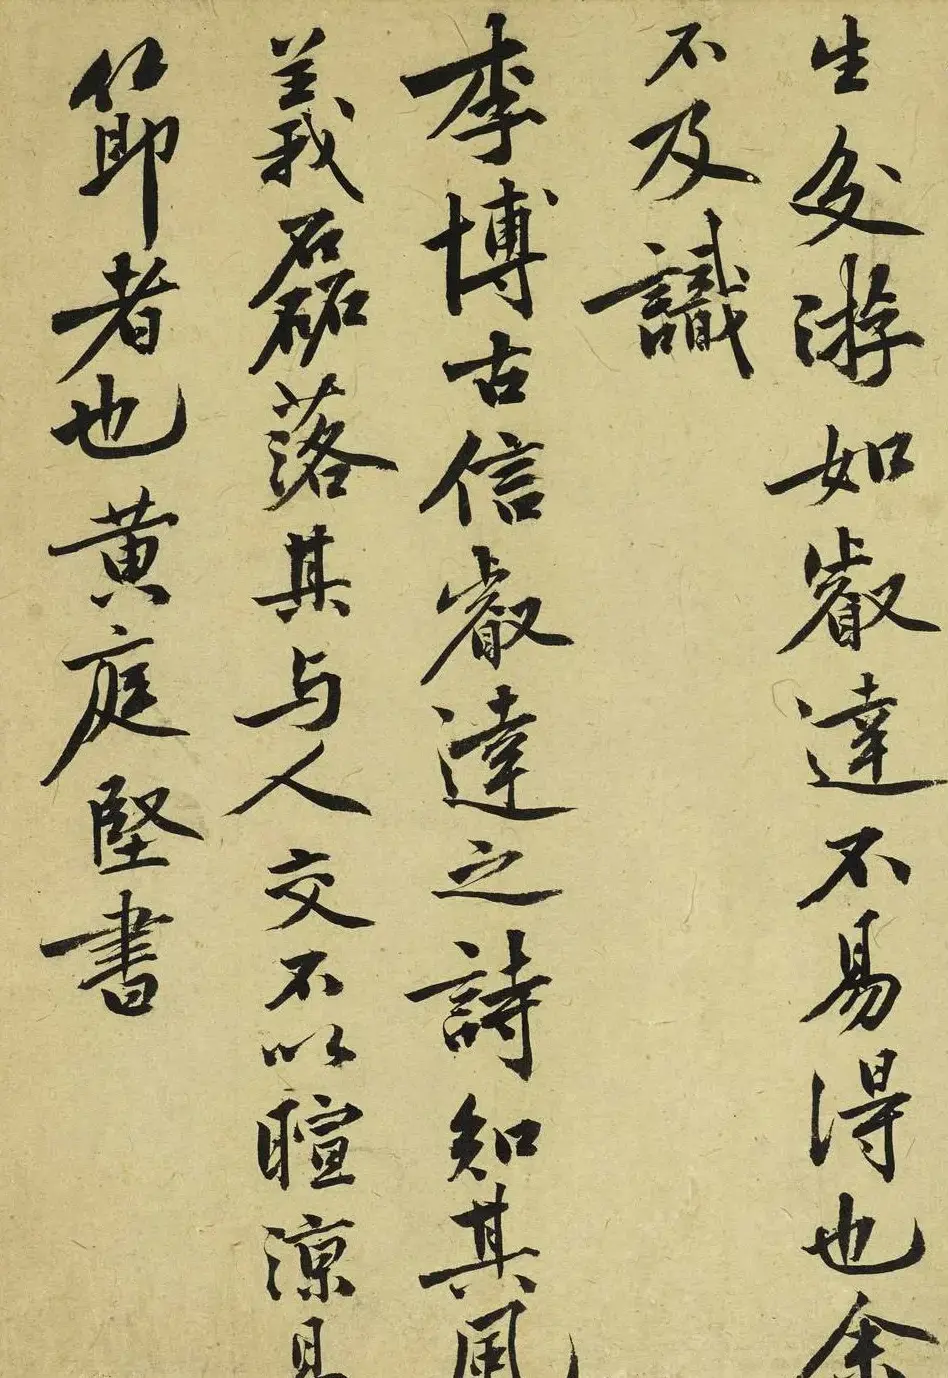 生交游如叡達不易得也余
不及識
李博古信叡達之詩知其風
義磊落其与人交不以暄涼易
節者也黄庭堅書